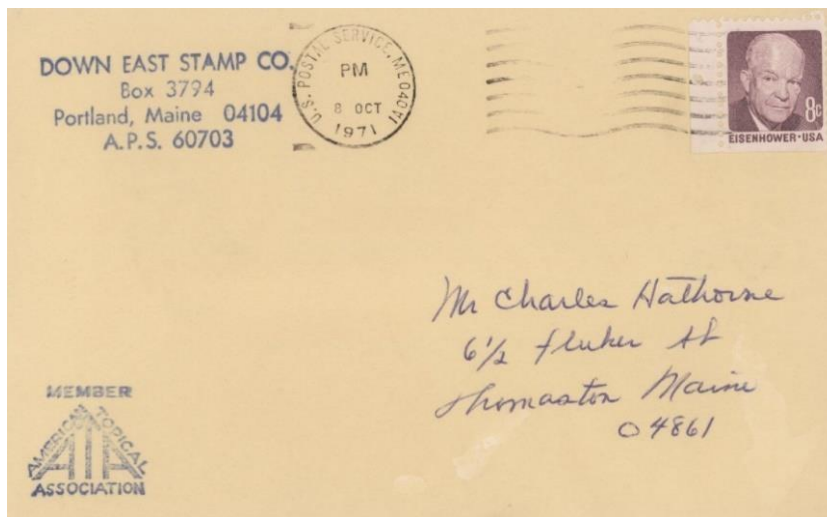 DOWN EAST STAMP CO.
Box 3794
Portland, Maine 04104
A.P.S. 60703
U.S. POSTAL SERVICE, ME 040
PM
8 OCT
1971
8c
EISENHOWER·USA
Mr Charles Hathorne
6½ Fluker St
Thomaston Maine
04861
MEMBER
AMERICAN TOPICAL
ATA
ASSOCIATION